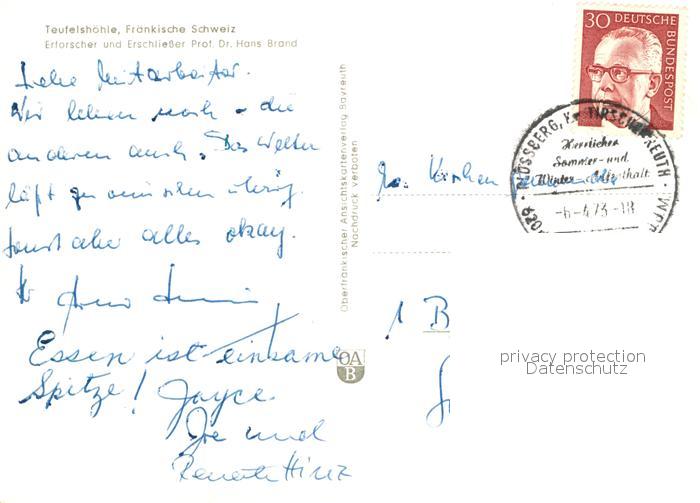 Teufelshöhle, Fränkische Schweiz
Erforscher und Erschließer Prof. Dr. Hans Brand
Liebe Mitarbeiter.
Wir leben noch - die
anderen auch. Das Wetter
läßt zu wünschen übrig,
sonst aber alles okay.
Essen ist einsame
Spitze! Joyce
Joe und
Renate Hinz
Oberfränkischer Ansichtskartenverlag Bayreuth
Nachdruck verboten
OA
B
30 DEUTSCHE
BUNDESPOST
PLÖSSBERG, KR. TIRSCHENREUTH
Herrlicher
Sommer- und
Winter-Aufenthalt
-6-4.73-18
1 B
privacy protection
Datenschutz